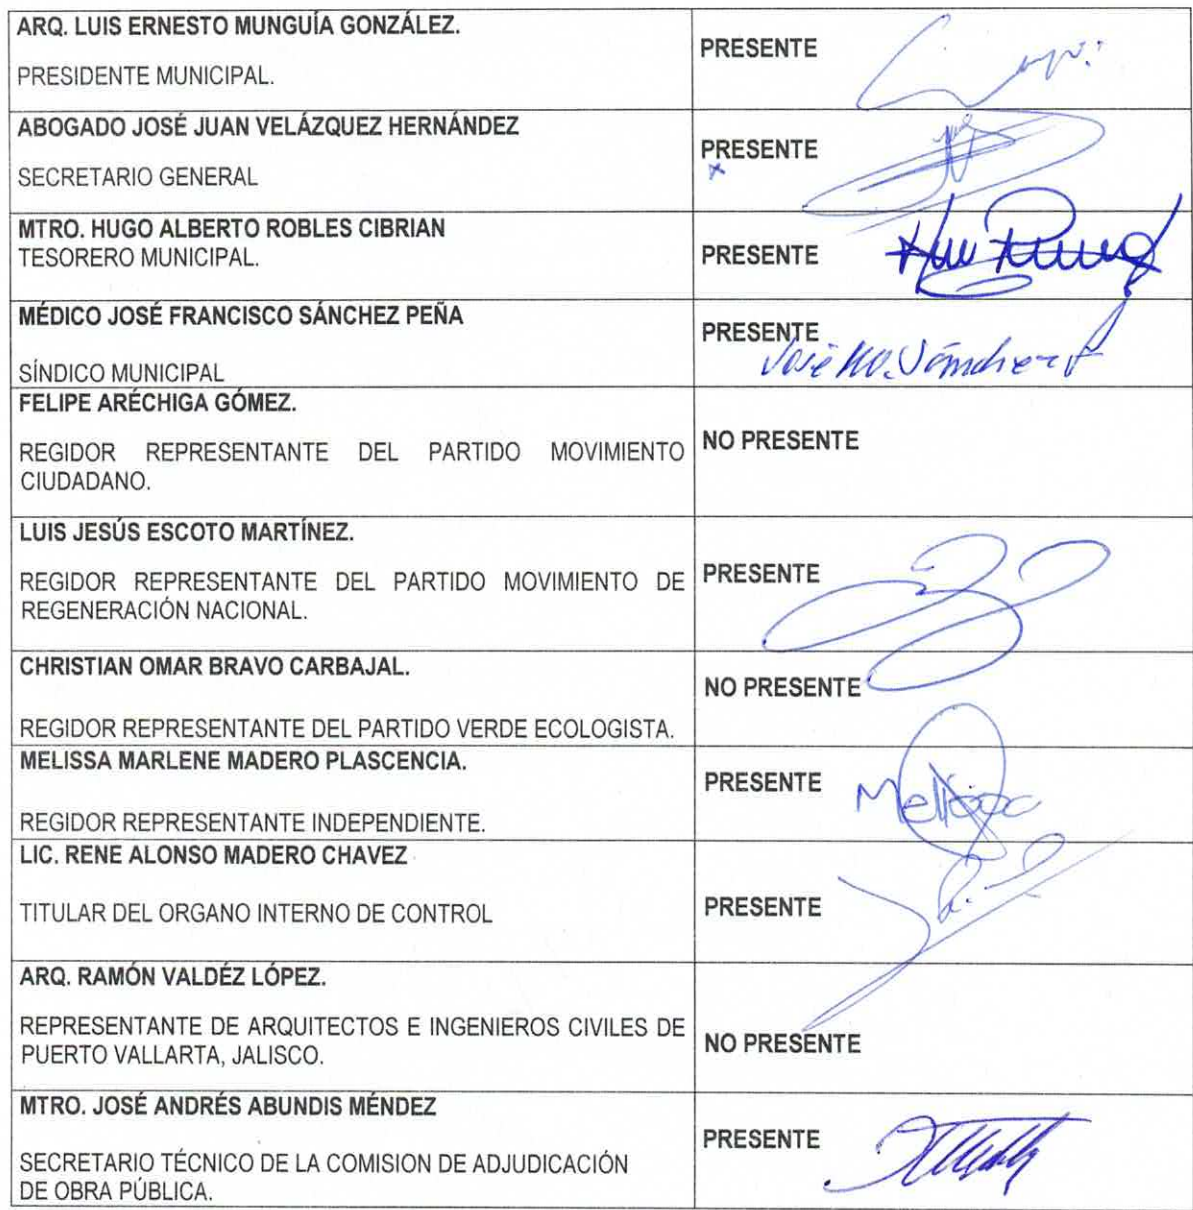 ARQ. LUIS ERNESTO MUNGUÍA GONZÁLEZ.
PRESIDENTE MUNICIPAL.
PRESENTE
ABOGADO JOSÉ JUAN VELÁZQUEZ HERNÁNDEZ
SECRETARIO GENERAL
PRESENTE
MTRO. HUGO ALBERTO ROBLES CIBRIAN
TESORERO MUNICIPAL.
PRESENTE
MÉDICO JOSÉ FRANCISCO SÁNCHEZ PEÑA
SÍNDICO MUNICIPAL
PRESENTE
FELIPE ARÉCHIGA GÓMEZ.
REGIDOR REPRESENTANTE DEL PARTIDO MOVIMIENTO
CIUDADANO.
NO PRESENTE
LUIS JESÚS ESCOTO MARTÍNEZ.
REGIDOR REPRESENTANTE DEL PARTIDO MOVIMIENTO DE
REGENERACIÓN NACIONAL.
PRESENTE
CHRISTIAN OMAR BRAVO CARBAJAL.
REGIDOR REPRESENTANTE DEL PARTIDO VERDE ECOLOGISTA.
NO PRESENTE
MELISSA MARLENE MADERO PLASCENCIA.
REGIDOR REPRESENTANTE INDEPENDIENTE.
PRESENTE
LIC. RENE ALONSO MADERO CHAVEZ
TITULAR DEL ORGANO INTERNO DE CONTROL
PRESENTE
ARQ. RAMÓN VALDÉZ LÓPEZ.
REPRESENTANTE DE ARQUITECTOS E INGENIEROS CIVILES DE
PUERTO VALLARTA, JALISCO.
NO PRESENTE
MTRO. JOSÉ ANDRÉS ABUNDIS MÉNDEZ
SECRETARIO TÉCNICO DE LA COMISION DE ADJUDICACIÓN
DE OBRA PÚBLICA.
PRESENTE